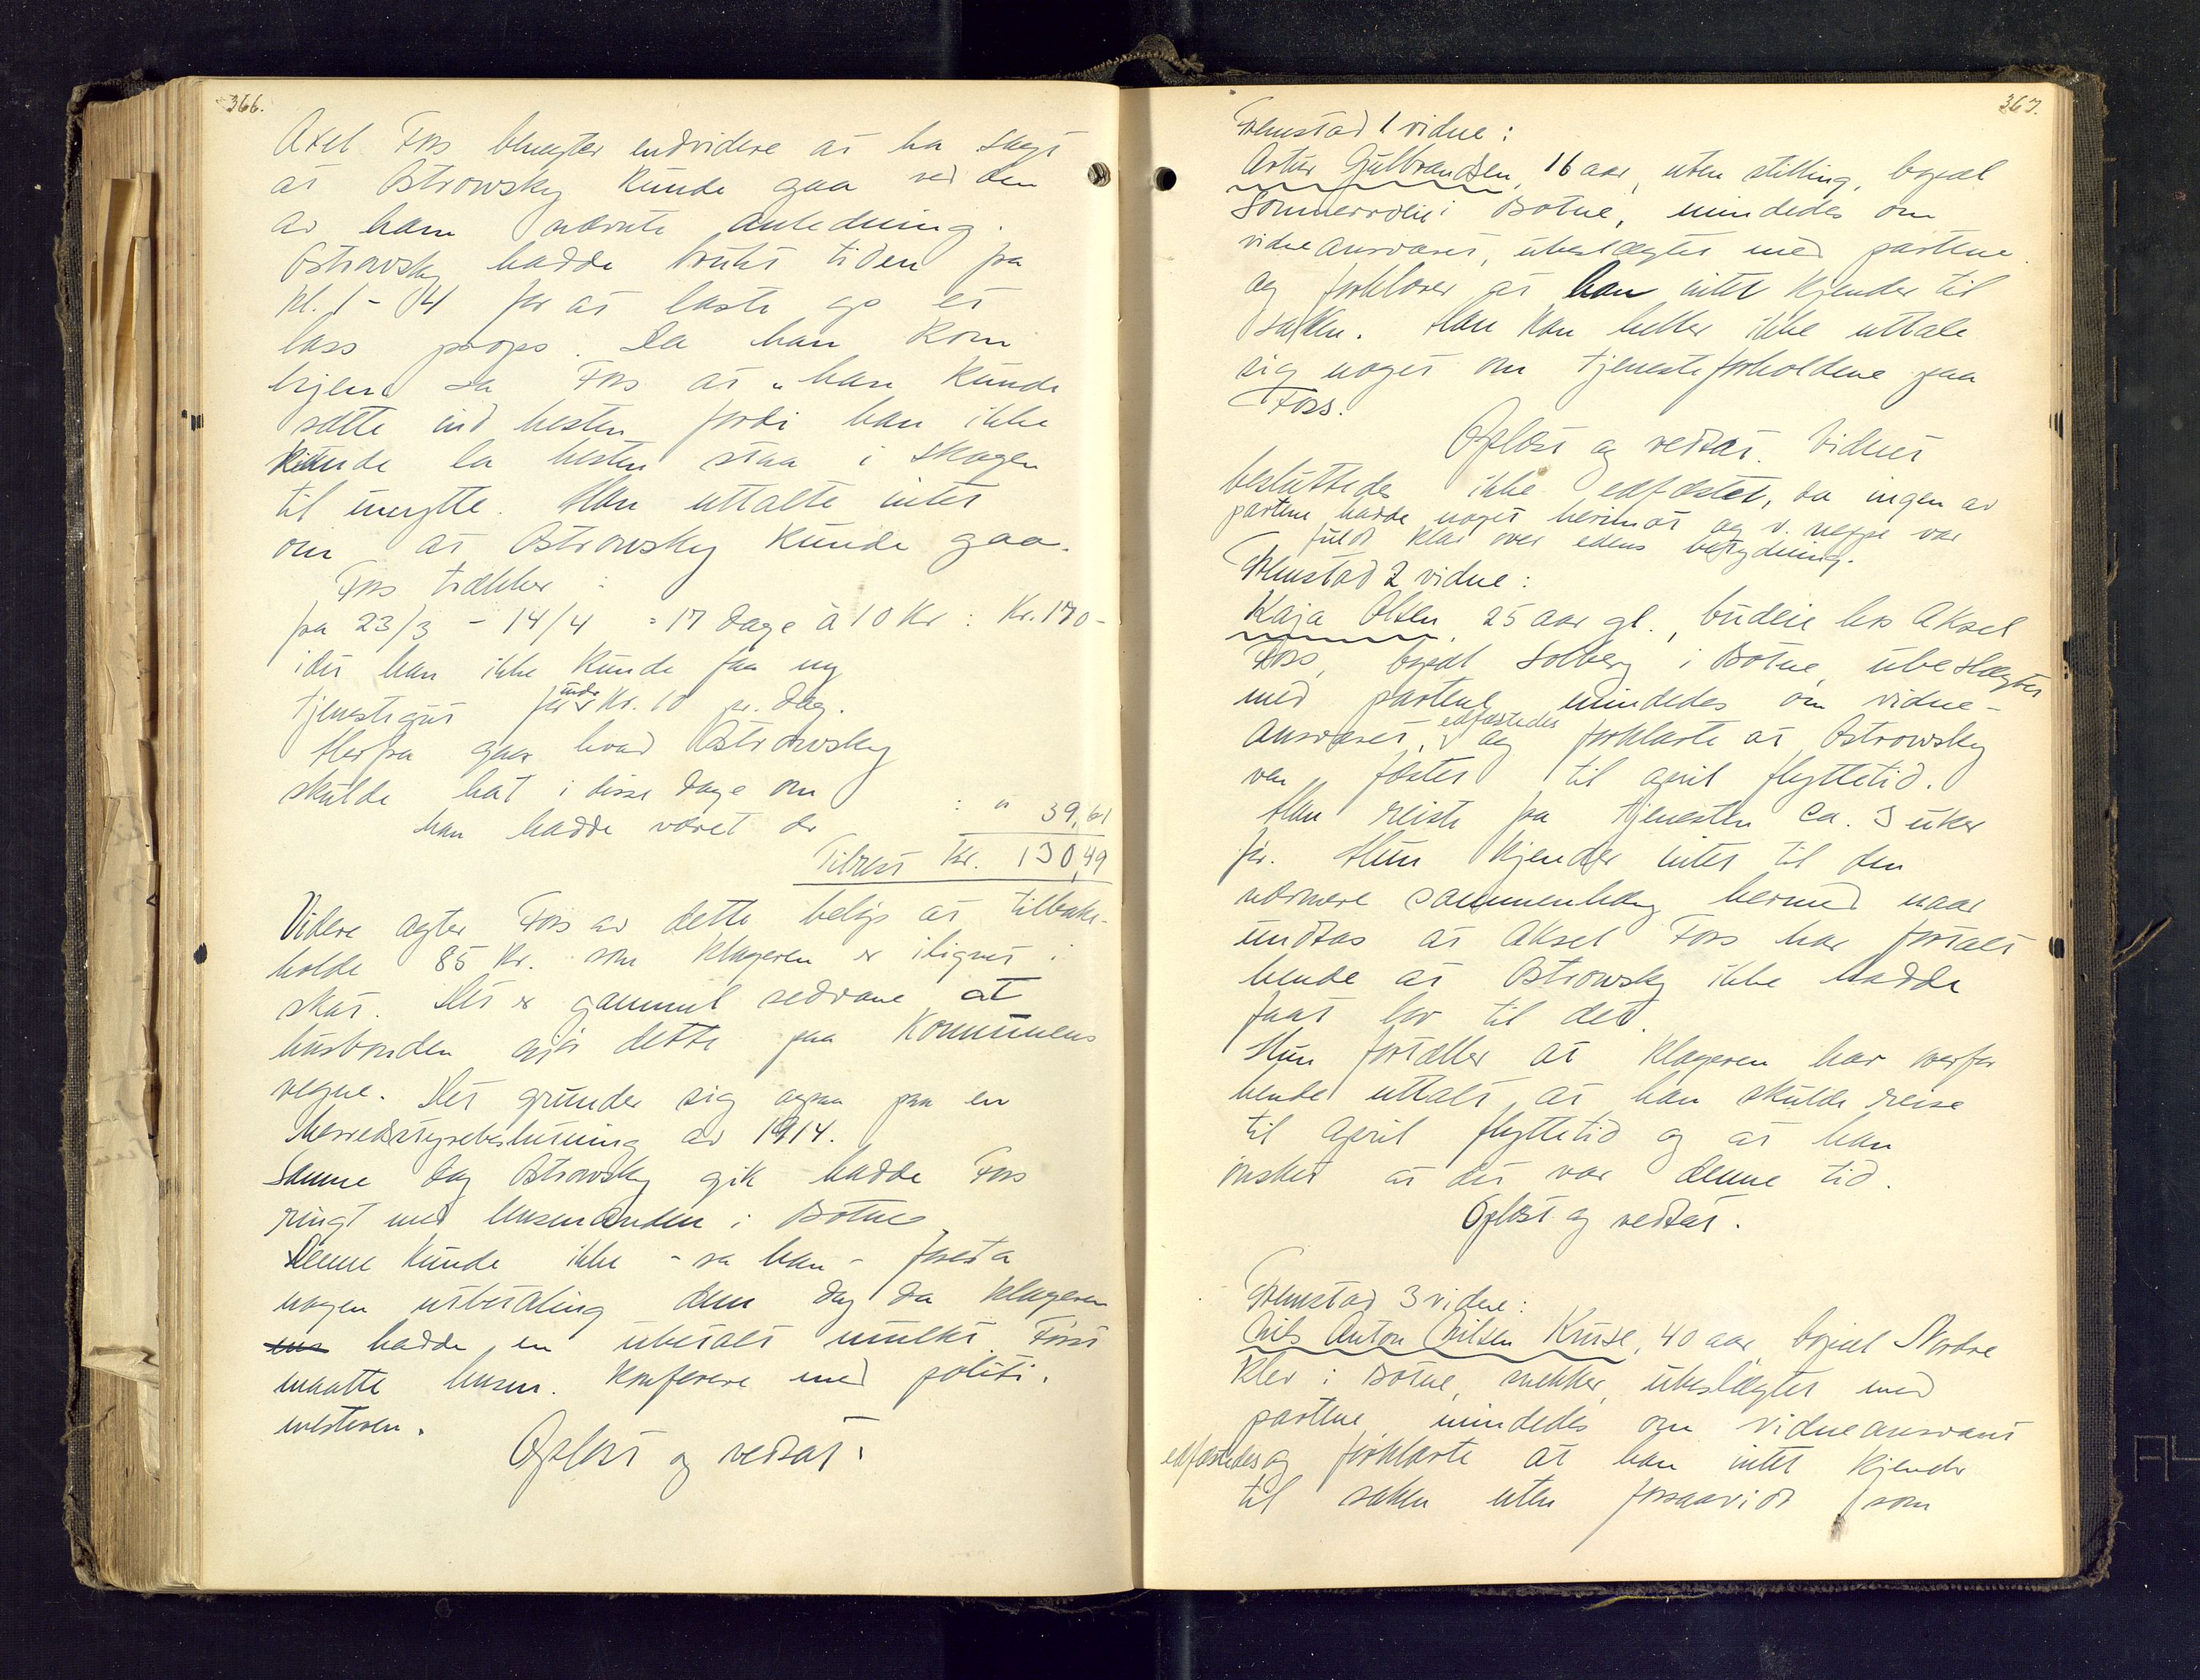 366.
Axel Foss benegter endvidere at ha sagt
at Ostrowsky kunde gaa ved den
av ham nævnte anledning.
Ostrowsky hadde brukt tiden fra
kl. 1 - 4 for at laste op et
lass props. Da han kom
hjem sa Foss at "han kunde
sætte ind hesten fordi han ikke
kunde la hesten staa i skogen
til unytte. Han uttalte intet
om at Ostrowsky kunde gaa.
Foss trækker :
fra 23/3 - 14/4 = 17 dage à 10 Kr : Kr. 170-
idet han ikke kunde faa ny
tjenestgut under Kr. 10 pr. dag.
Herfra gaar hvad Ostrowsky
skulde hat i disse dage om
han hadde været der : " 39,61
Tilrest Kr. 130,49
Videre agter Foss av dette beløp at tilbake-
holde 85 Kr. som klageren er ilignet i
skat. Det er gammel sedvane at
husbonden gjør dette paa Kommunens
vegne. Det grunder sig ogsaa paa en
herredsstyrebeslutning av 1914.
Samme dag Ostrowsky gik hadde Foss
ringt med lensmanden i Botne
Denne kunde ikke - sa han - foreta
nogen utbetaling den dag da klageren
hadde en ubetalt mulkt. Først
maatte lensm. konferere med politi-
mesteren.
Oplæst og vedtat.
367.
Fremstod 1 vidne :
Artur Gulbrandsen, 16 aar, uten stilling, bopæl
Sommerroen i Botne, mindedes om
vidneansvaret, ubeslægtet med partene
og forklarer at han intet kjender til
saken. Han kan heller ikke uttale
sig noget om tjenesteforholdene paa
Foss.
Oplæst og vedtat. Vidnet
besluttedes ikke edfæstet, da ingen av
partene hadde noget herimot og v. neppe var
fuldt klar over edens betydning.
Fremstod 2 vidne :
Kaja Olsen, 25 aar gl., budeie hos Aksel
Foss, bopæl Solberg i Botne, ubeslægtet
med partene, mindedes om vidne-
ansvaret, edfæstedes og forklarte at Ostrowsky
var fæstet til april flyttetid.
Han reiste fra tjenesten ca. 3 uker
før. Hun kjender intet til den
nærmere sammenhæng hermed naar
undtas at Aksel Foss har fortalt
hende at Ostrowsky ikke hadde
faat lov til det.
Hun fortæller at klageren har overfor
hende uttalt at han skulde reise
til april flyttetid og at han
ønsket at det var denne tid.
Oplæst og vedtat.
Fremstod 3 vidne :
Nils Anton Nilsen Kruse, 40 aar bopæl Nordre
Klev i Botne, snekker, ubeslægtet med
partene, mindedes om vidneansvaret
edfæstedes og forklarte at han intet kjender
til saken uten forsaavidt som